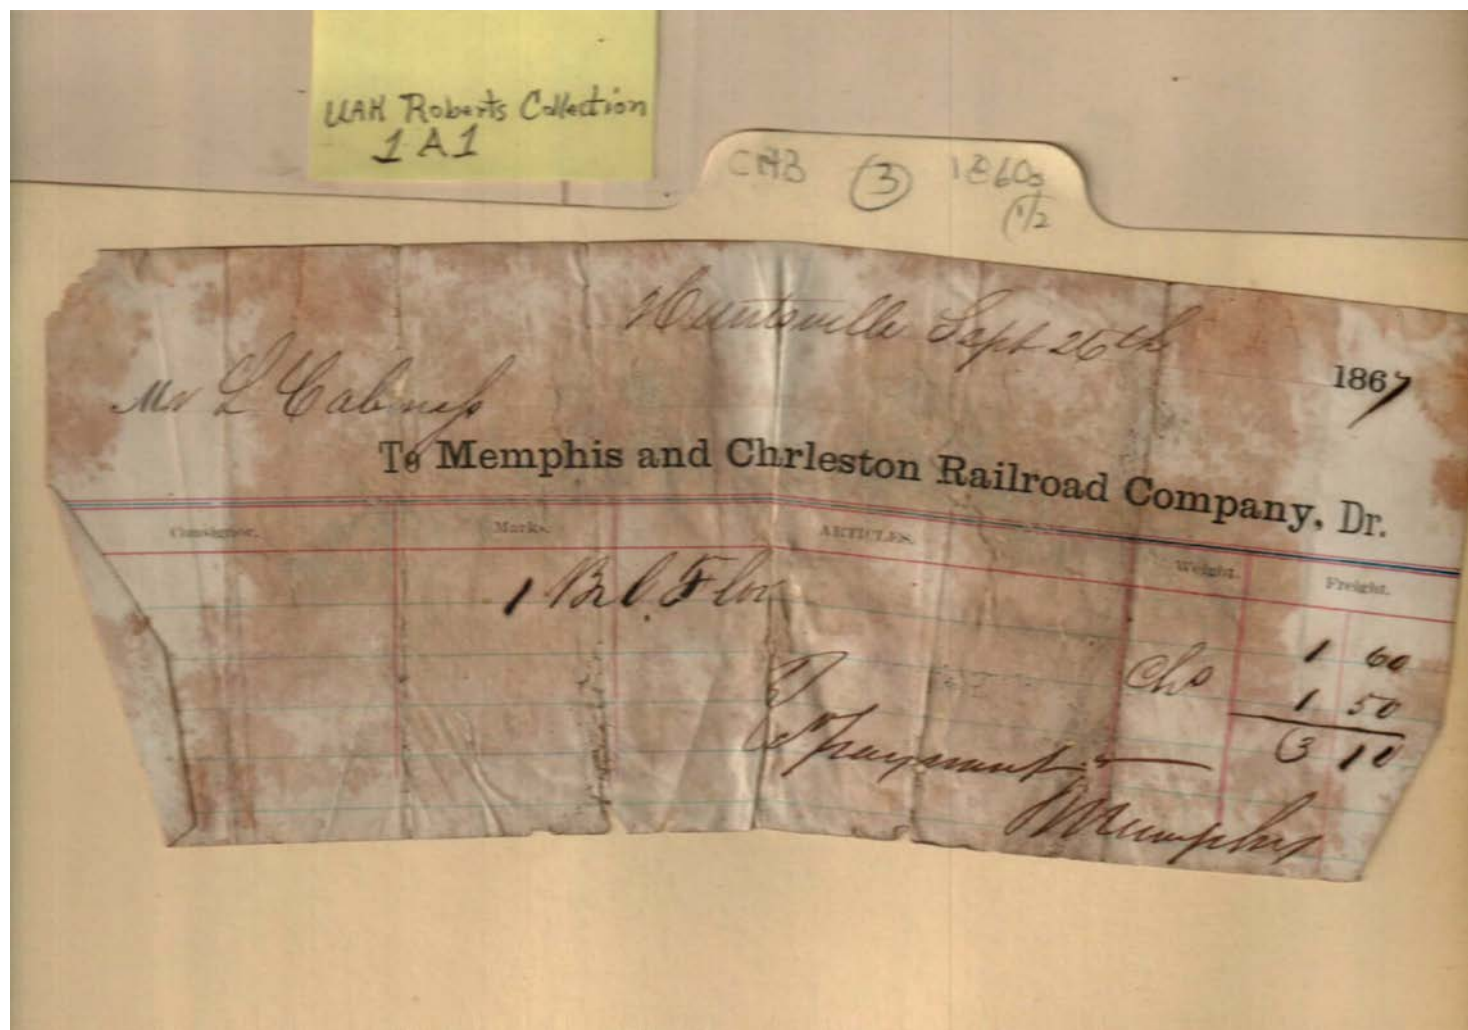 UAH Roberts Collection
1 A 1
CAB 3 1860s
1/2
Huntsville Sept 26th
1867
Mr L Cabiness
To Memphis and Chrleston Railroad Company, Dr.
Consignor. Marks. ARTICLES. Weight. Freight.
1 Brl Flor
1 60
Chs 1 50
3 10
Memphis